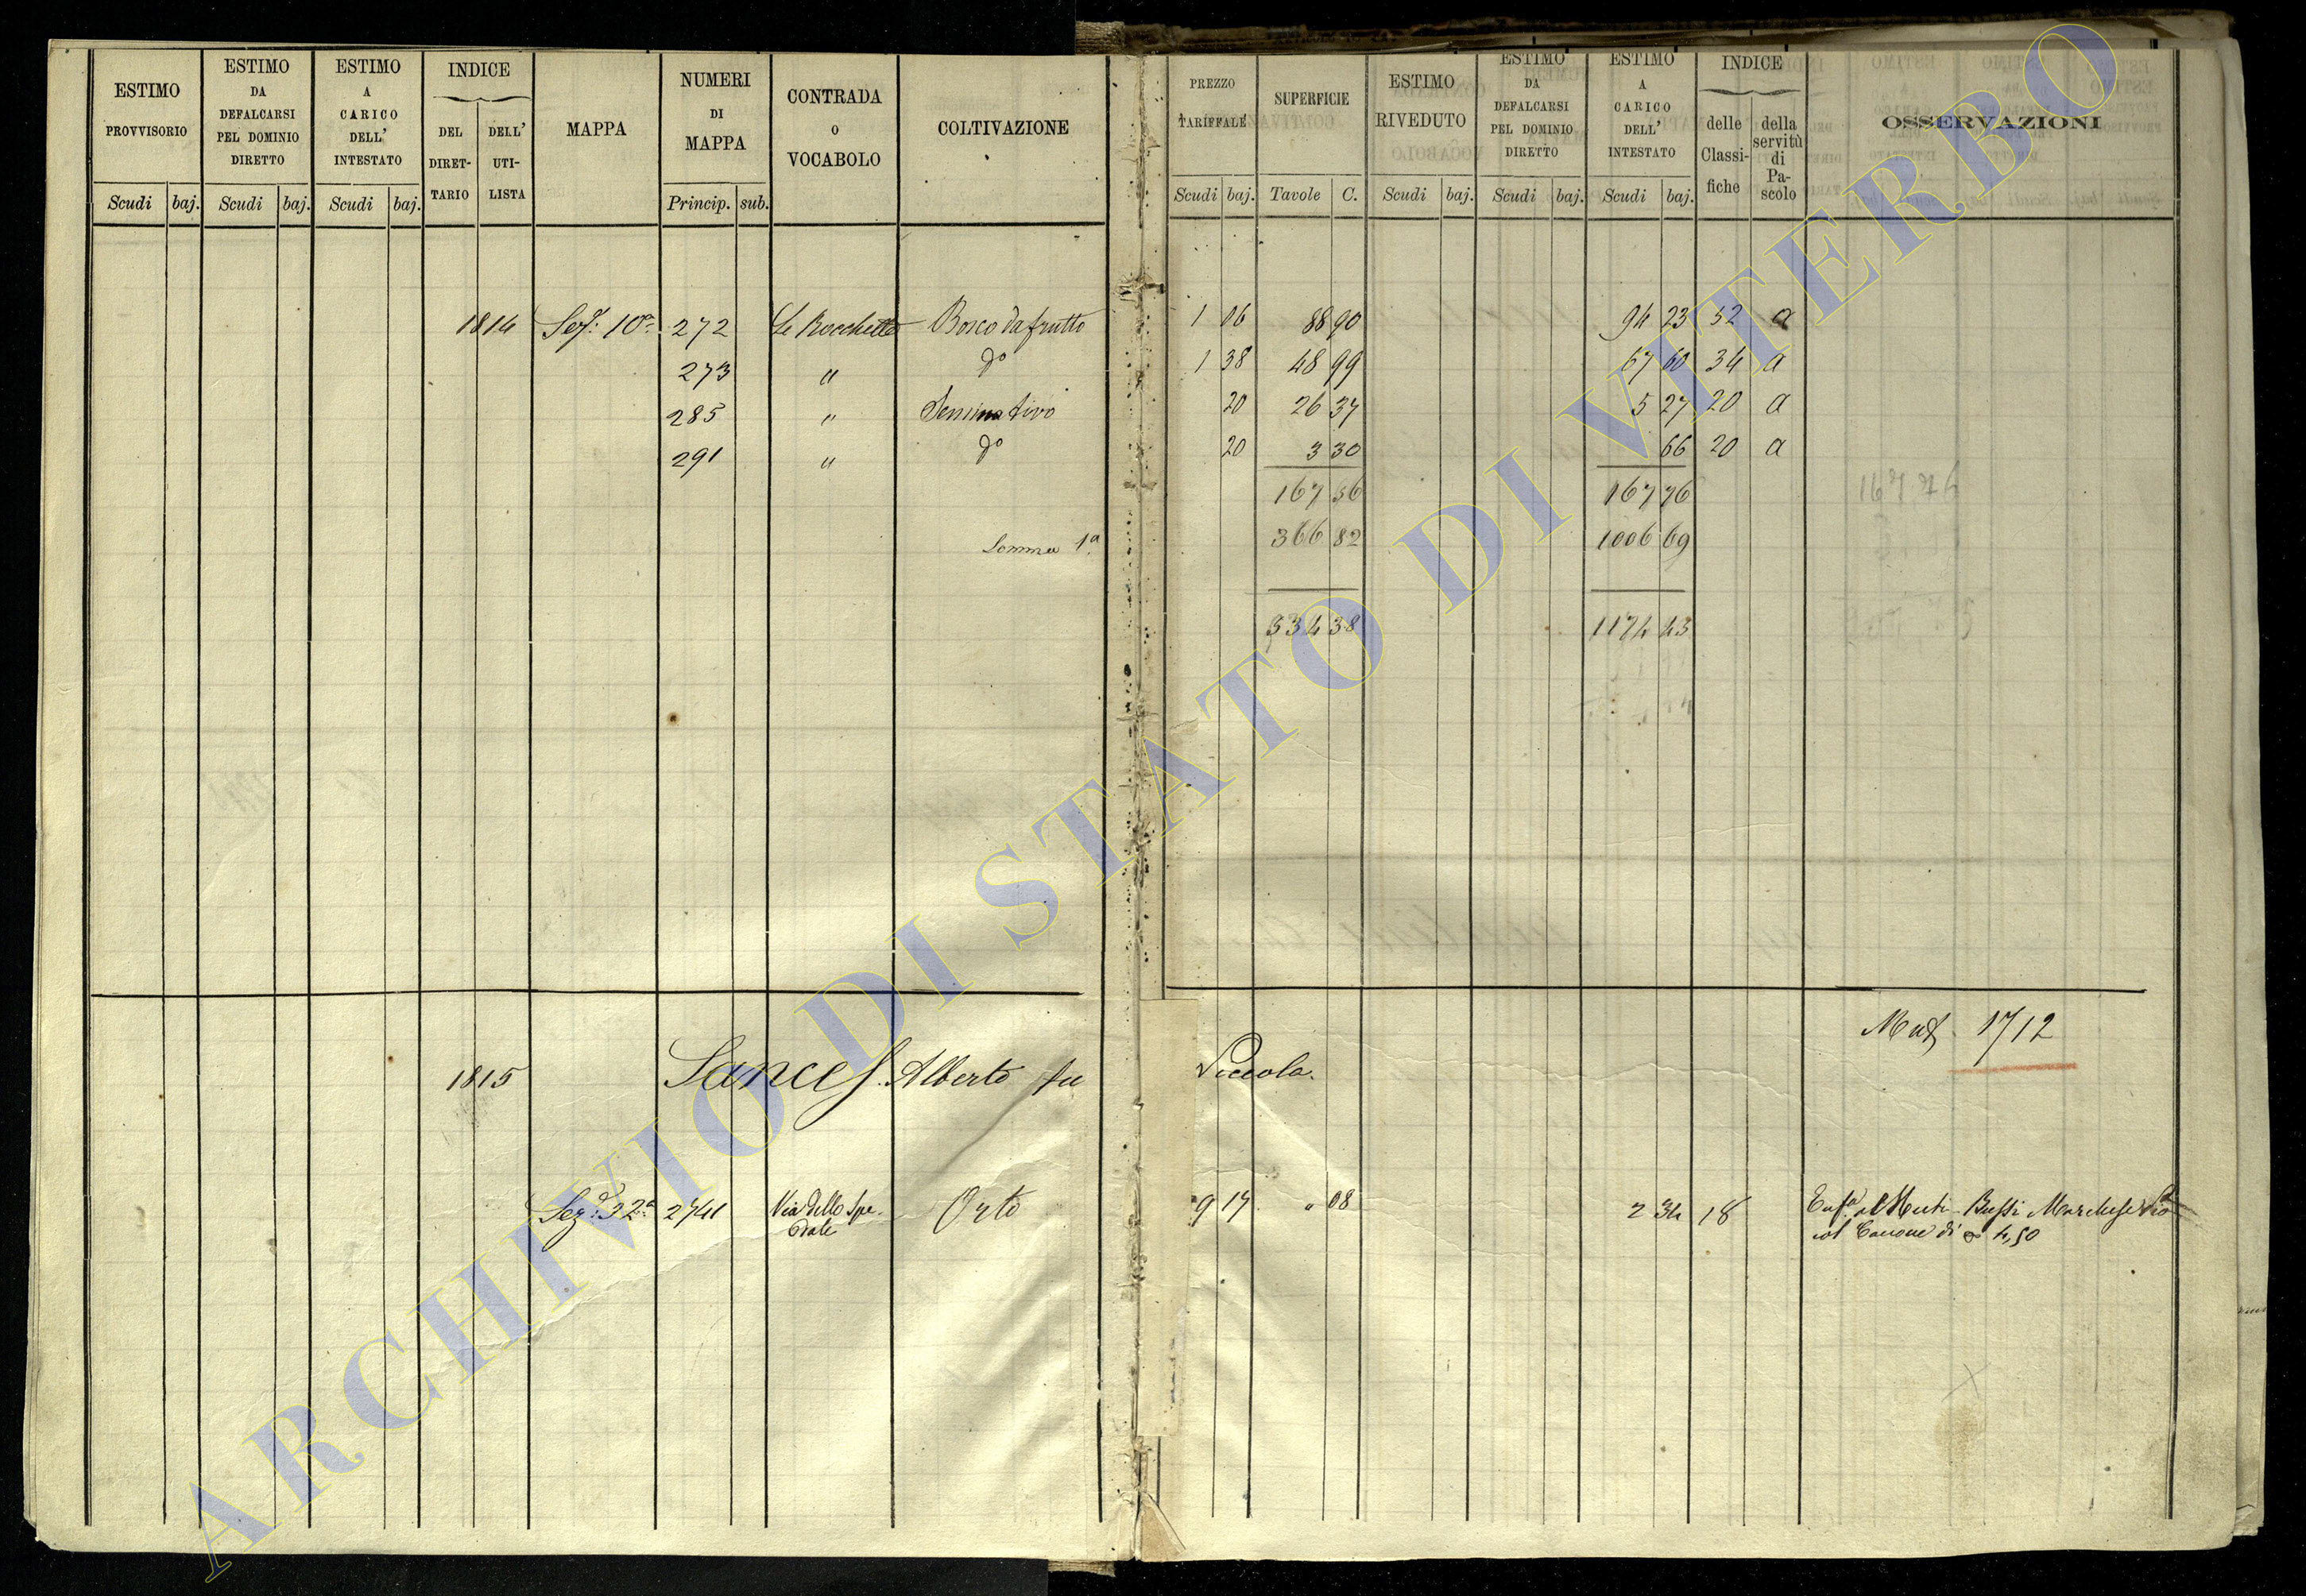 ESTIMO PROVVISORIO
ESTIMO DA DEFALCARSI PEL DOMINIO DIRETTO
ESTIMO A CARICO DELL' INTESTATO
INDICE
DEL DIRET-TARIO
DELL' UTI-LISTA
MAPPA
NUMERI DI MAPPA
CONTRADA O VOCABOLO
COLTIVAZIONE
PREZZO TARIFFALE
SUPERFICIE
ESTIMO RIVEDUTO
ESTIMO DA DEFALCARSI PEL DOMINIO DIRETTO
ESTIMO A CARICO DELL' INTESTATO
INDICE
delle Classi-fiche
della servitù di Pa-scolo
OSSERVAZIONI
Scudi baj. Scudi baj. Scudi baj. Princip. sub. Scudi baj. Tavole C. Scudi baj. Scudi baj. Scudi baj.
1814 10a 272 Le Rocchette Bosco da frutto 1 06 88 90 94 23 52 a
273 " do 1 38 48 99 67 60 34 a
285 " Seminativo 20 26 37 5 27 20 a
291 " do 20 3 30 66 20 a
167 56 167 76
Somma 1a 366 82 1006 69
534 38 1174 43
Mut. 1712
1815 Sances Alberto fu Niccola.
Sez. 32a 2741 Via dello Spe-dale Orto 9 17 " 08 2 34 18 Enfa a Muti-Bussi Marchese
col Canone di 4,50
ARCHIVIO DI STATO DI VITERBO